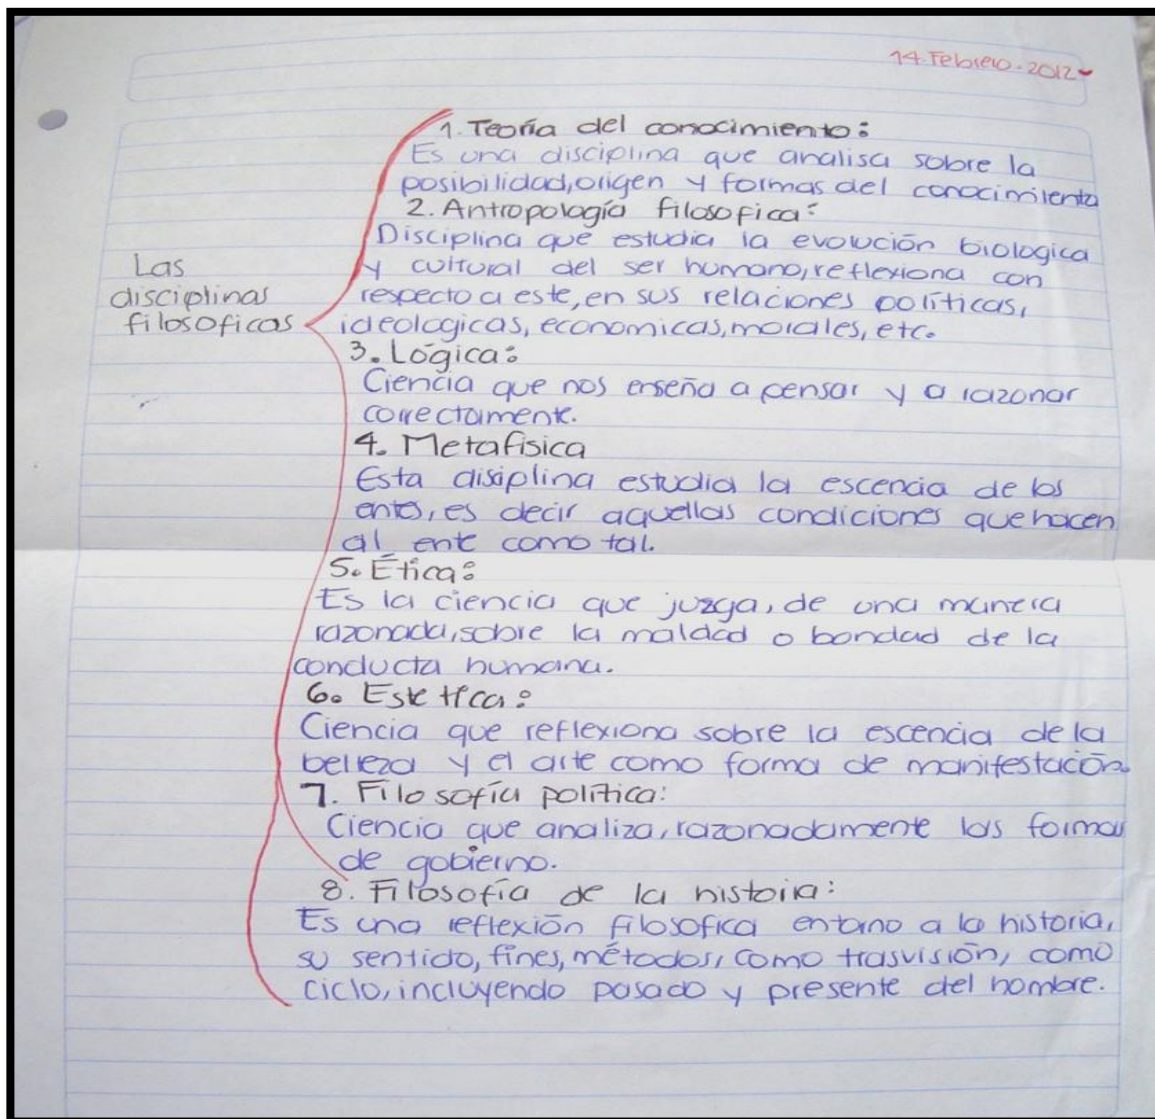 14. Febrero. 2012
Las
disciplinas
filosoficas
1. Teoría del conocimiento:
Es una disciplina que analisa sobre la
posibilidad, origen y formas del conocimiento
2. Antropología filosofica:
Disciplina que estudia la evolución biologica
y cultural del ser humano, reflexiona con
respecto a este, en sus relaciones políticas,
ideologicas, economicas, morales, etc.
3. Lógica:
Ciencia que nos enseña a pensar y a razonar
correctamente.
4. Metafisica
Esta disiplina estudia la escencia de los
entes, es decir aquellas condiciones que hacen
al ente como tal.
5. Ética:
Es la ciencia que juzga, de una manera
razonada, sobre la maldad o bondad de la
conducta humana.
6. Estetica:
Ciencia que reflexiona sobre la escencia de la
belleza y el arte como forma de manifestación.
7. Filosofía política:
Ciencia que analiza, razonadamente las formas
de gobierno.
8. Filosofía de la historia:
Es una reflexión filosofica entorno a la historia,
su sentido, fines, métodos, como trasvisión, como
ciclo, incluyendo pasado y presente del hombre.